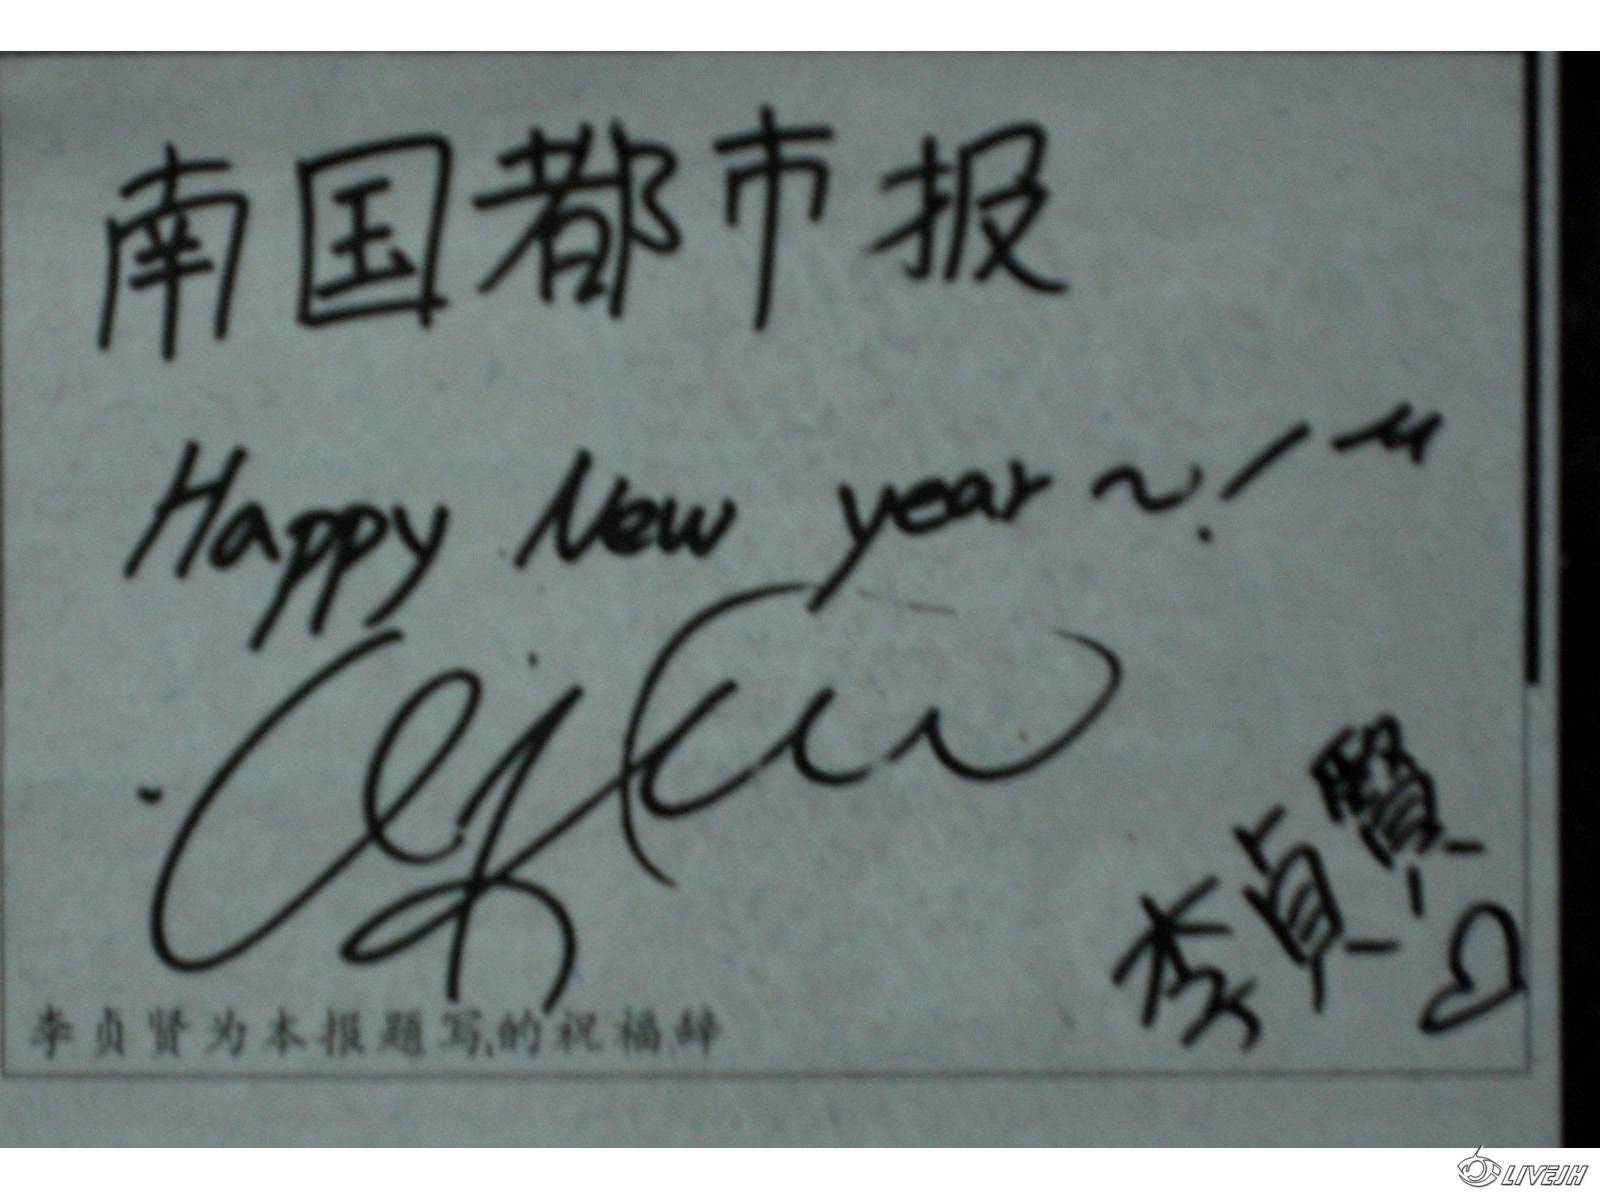 南国都市报
Happy New year ~!
李貞賢
李贞贤为本报题写的祝福辞
LIVEJH